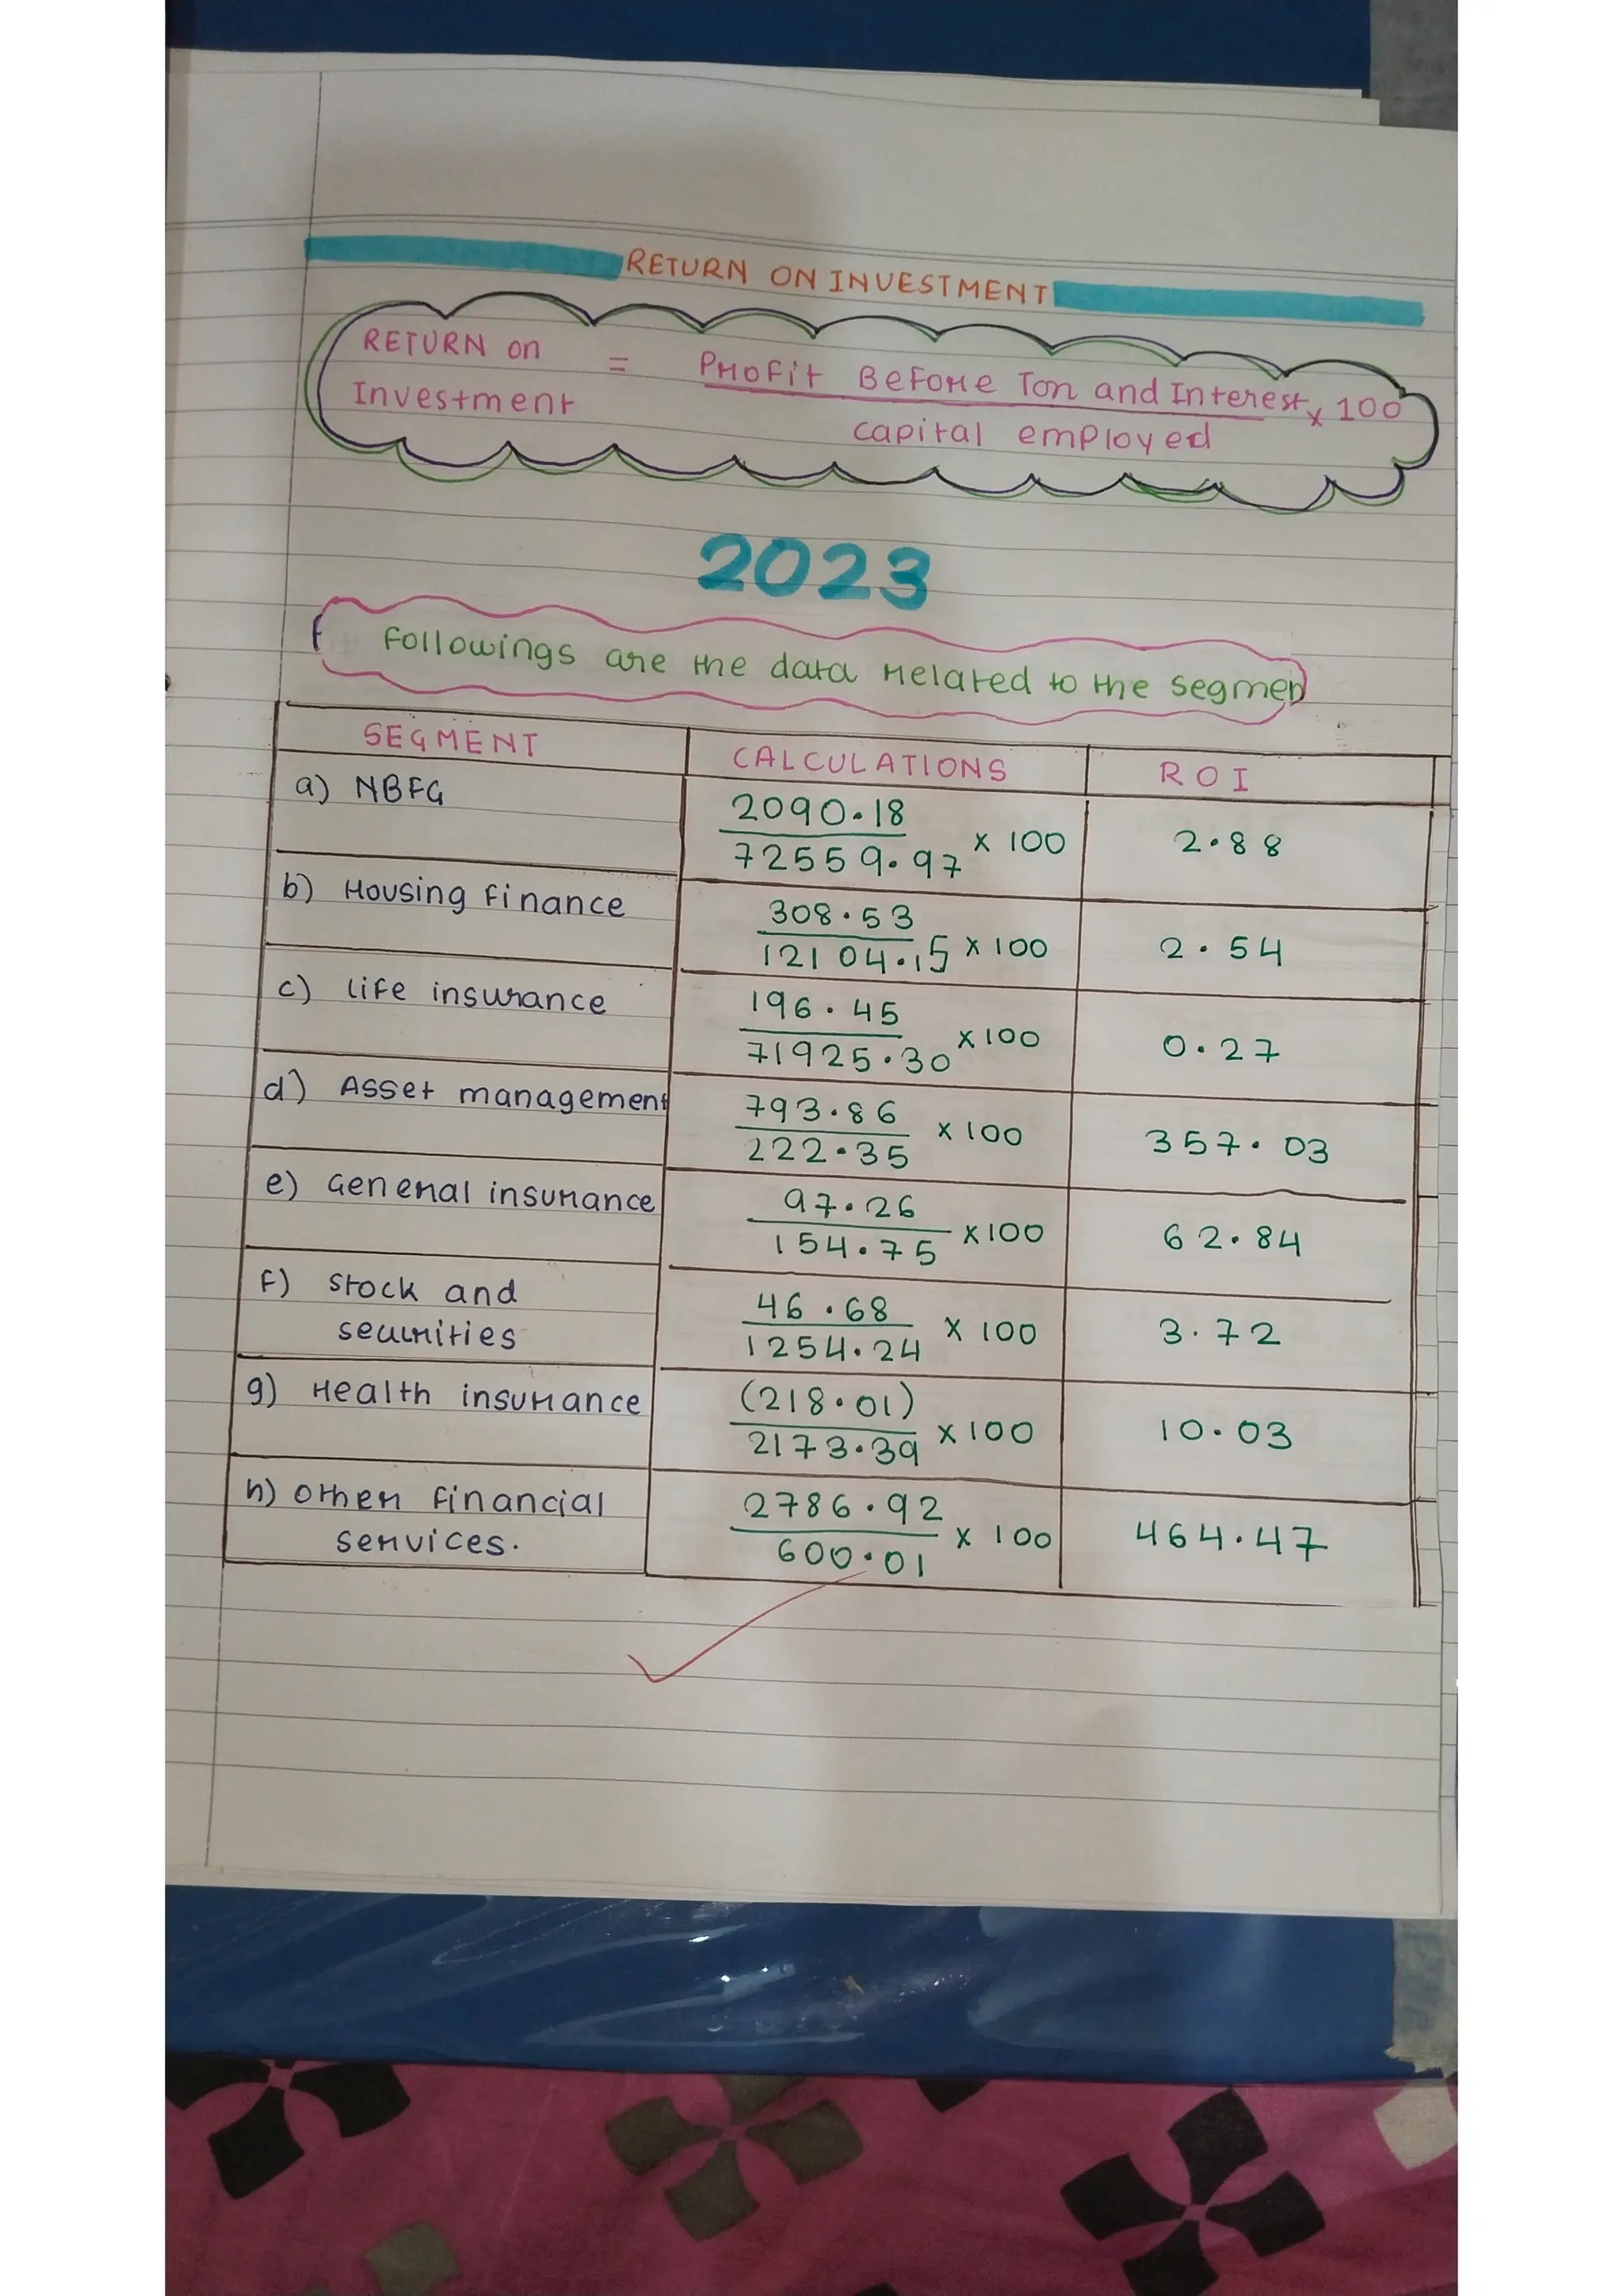 RETURN ON INVESTMENT
RETURN on Investment = Profit Before Tax and Interest x 100
capital employed
2023
Followings are the data related to the segmen
SEGMENT CALCULATIONS ROI
a) NBFG 2090.18 / 72559.97 x 100 2.88
b) Housing finance 308.53 / 12104.15 x 100 2.54
c) life insurance 196.45 / 71925.30 x 100 0.27
d) Asset management 793.86 / 222.35 x 100 357.03
e) General insurance 97.26 / 154.75 x 100 62.84
F) Stock and securities 46.68 / 1254.24 x 100 3.72
g) Health insurance (218.01) / 2173.39 x 100 10.03
h) other financial services. 2786.92 / 600.01 x 100 464.47